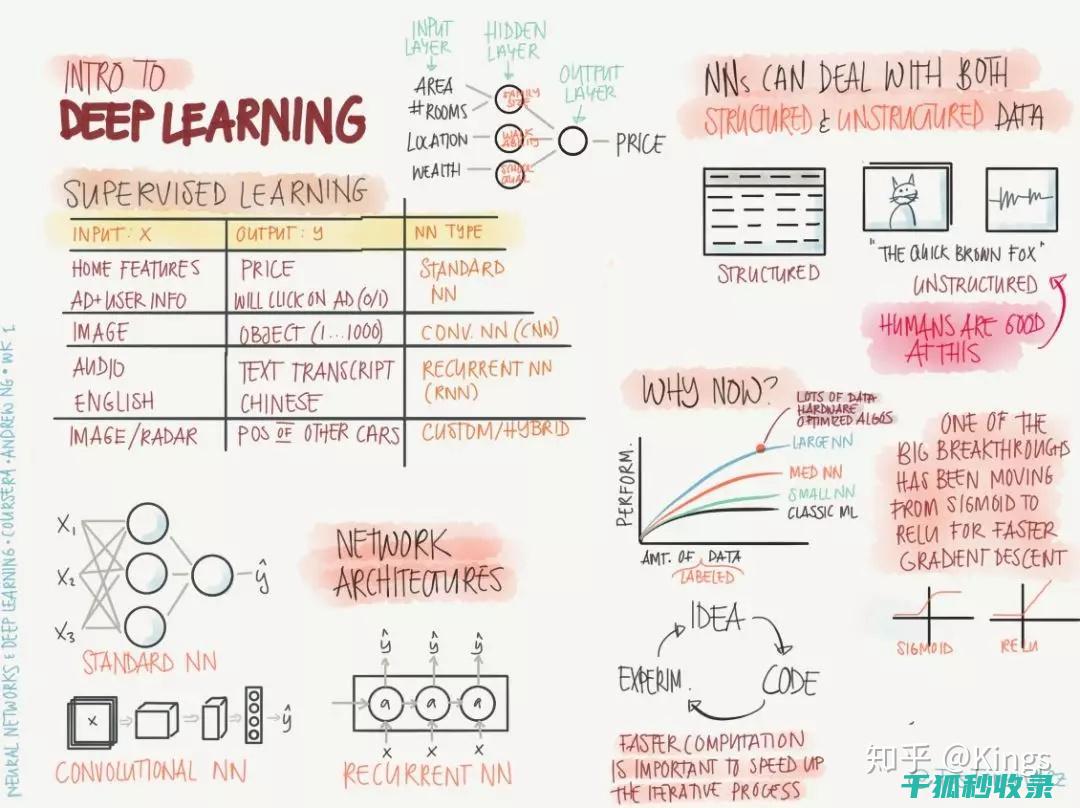 INTRO TO
DEEP LEARNING
INPUT
LAYER
HIDDEN
LAYER
OUTPUT
LAYER
AREA
#ROOMS
LOCATION
WEALTH
FAMILY
SIZE
WALK
ABILITY
SCHOOL
QUAL
PRICE
SUPERVISED LEARNING
INPUT: X OUTPUT: y NN TYPE
HOME FEATURES PRICE STANDARD
AD+USER INFO WILL CLICK ON AD (0/1) NN
IMAGE OBJECT (1...1000) CONV. NN (CNN)
AUDIO TEXT TRANSCRIPT RECURRENT NN
ENGLISH CHINESE (RNN)
IMAGE/RADAR POS OF OTHER CARS CUSTOM/HYBRID
NNs CAN DEAL WITH BOTH
STRUCTURED & UNSTRUCTURED DATA
STRUCTURED
"THE QUICK BROWN FOX"
UNSTRUCTURED
HUMANS ARE GOOD
AT THIS
WHY NOW?
LOTS OF DATA
HARDWARE
OPTIMIZED ALGOS
LARGE NN
MED NN
SMALL NN
CLASSIC ML
PERFORM.
AMT. OF DATA
LABELED
ONE OF THE
BIG BREAKTHROUGHS
HAS BEEN MOVING
FROM SIGMOID TO
RELU FOR FASTER
GRADIENT DESCENT
SIGMOID
RELU
X₁
X₂
X₃
ŷ
STANDARD NN
NETWORK
ARCHITECTURES
x
ŷ
CONVOLUTIONAL NN
ŷ ŷ ŷ
a a a
x x x
RECURRENT NN
IDEA
CODE
EXPERIM.
FASTER COMPUTATION
IS IMPORTANT TO SPEED UP
THE ITERATIVE PROCESS
NEURAL NETWORKS & DEEP LEARNING • COURSERA • ANDREW NG • WK 1
知乎 @Kings
千狐秒收录